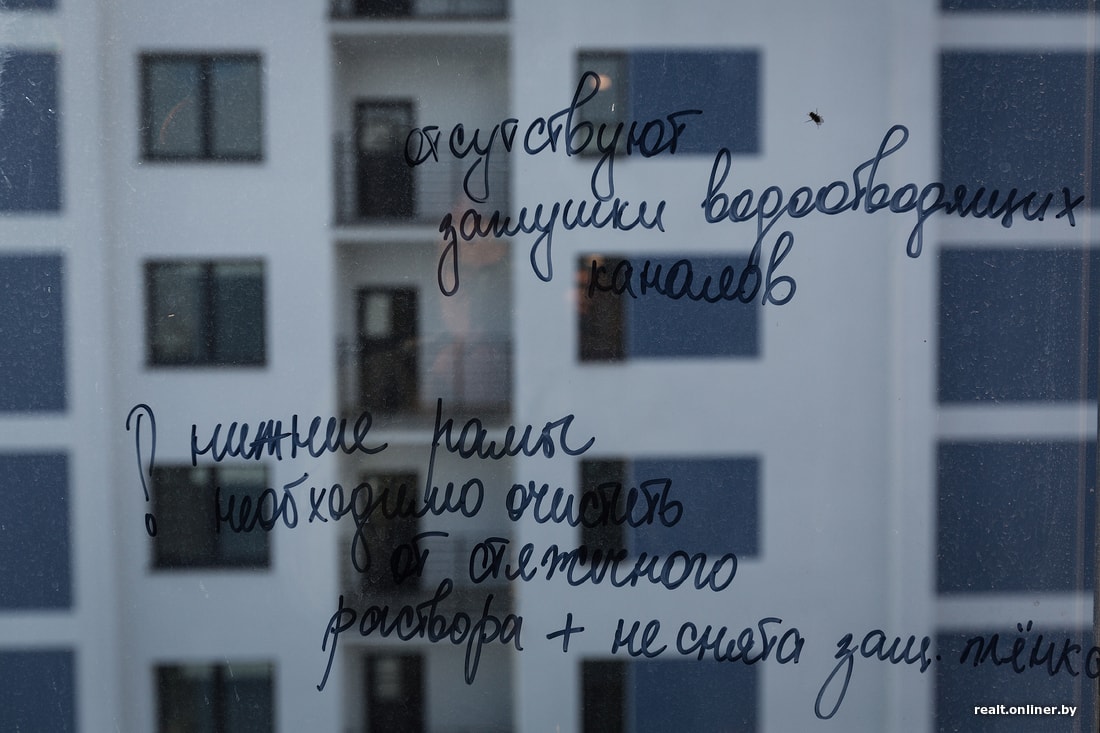 отсутствуют
заглушки водоотводящих
каналов
! нижние рамы
необходимо очистить
от стяжечного
раствора + не снята защ. плёнка
realt.onliner.by